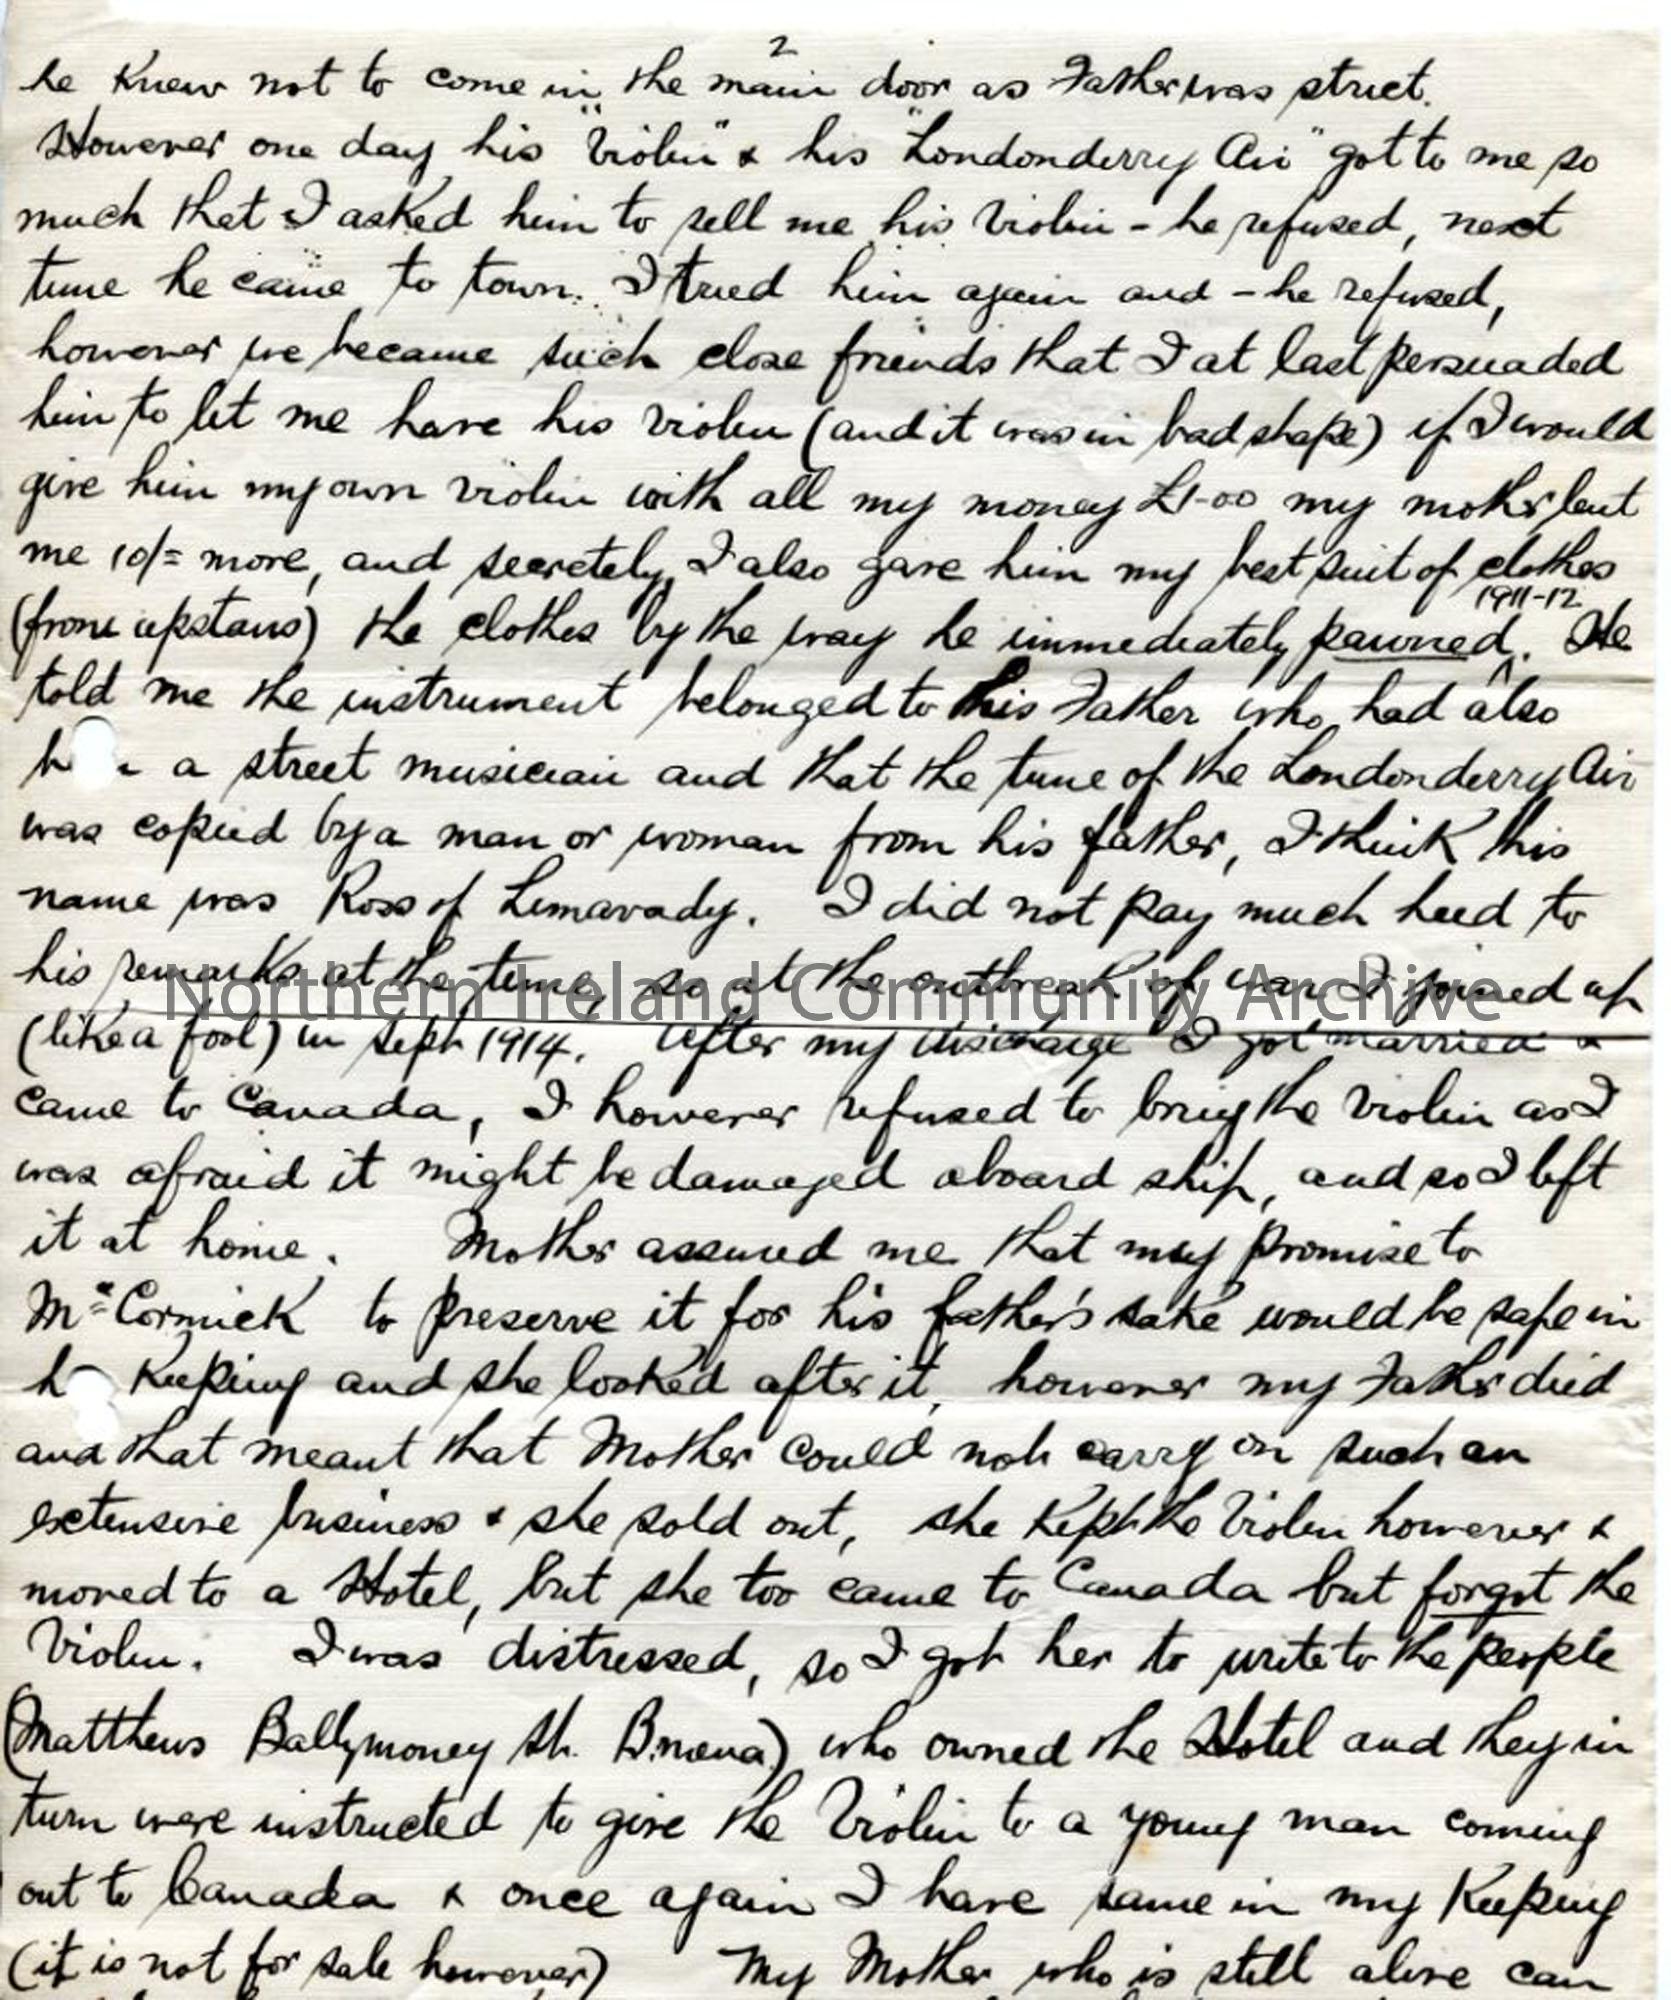 2
he knew not to come in the main door as Father was strict.
However one day his "Violin" & his "Londonderry Air" got to me so
much that I asked him to sell me his Violin - he refused, next
time he came to town. I tried him again and - he refused,
however we became such close friends that I at last persuaded
him to let me have his violin (and it was in bad shape) if I would
give him my own violin with all my money £1-00 my mother lent
me 10/= more, and secretely, I also gave him my best suit of clothes
1911-12
(from upstairs) the clothes by the way he immediately pawned. He
told me the instrument belonged to his Father who had also
a street musician and that the tune of the Londonderry Air
was copied by a man or woman from his father, I think his
name was Ross of Limavady. I did not pay much heed to
his remarks at the time, so at the outbreak of war I joined up
Northern Ireland Community Archive
(like a fool) in Sept 1914. After my discharge I got married &
came to Canada, I however refused to bring the Violin as I
was afraid it might be damaged aboard ship, and so I left
it at home. Mother assured me that my promise to
McCormick to preserve it for his father's sake would be safe in
keeping and she looked after it, however my Father died
and that meant that Mother could not carry on such an
extensive business & she sold out, she kept the Violin however &
moved to a Hotel, but she too came to Canada but forgot the
Violin. I was distressed, so I got her to write to the people
(Matthews Ballymoney St. B.mena) who owned the Hotel and they in
turn were instructed to give the Violin to a young man coming
out to Canada & once again I have same in my keeping
(it is not for sale however) My Mother who is still alive can